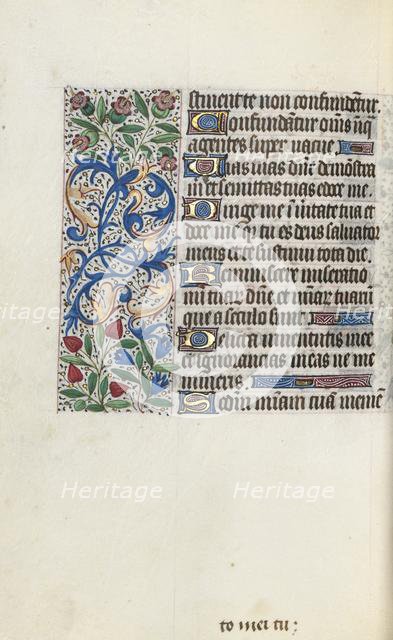 stinent te non confundẽtur.
Confundãtur om̃s iniq̃
agentes super vacue.
Uias tuas dñe demostra
m̃ et semittas tuas edoce me.
Dirige me ĩ uĩtate tua et
doce me qr tu es deus saluator
meus et te sustinui tota die.
Reminiscere miseratio
nũ tuar̃ dñe et m̃iar̃ tuarũ
que a seculo sunt.
Delicta iuuentutis mee
et ignorancias meas ne me
mineris
Scdm m̃iam tuã memẽ
to mei tu:
Heritage
Heritage
Heritage
Heritage